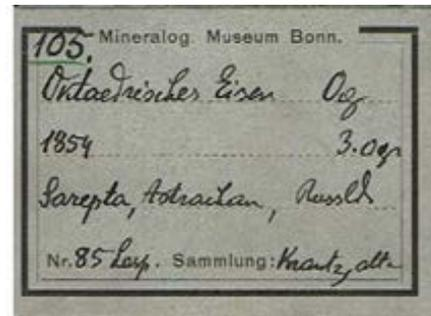 105. Mineralog. Museum Bonn.
Oktaedrischer Eisen Og
1854 3.0gr
Sarepta, Astrachan, Russld
Nr. 85 Sammlung: Krantz, alte